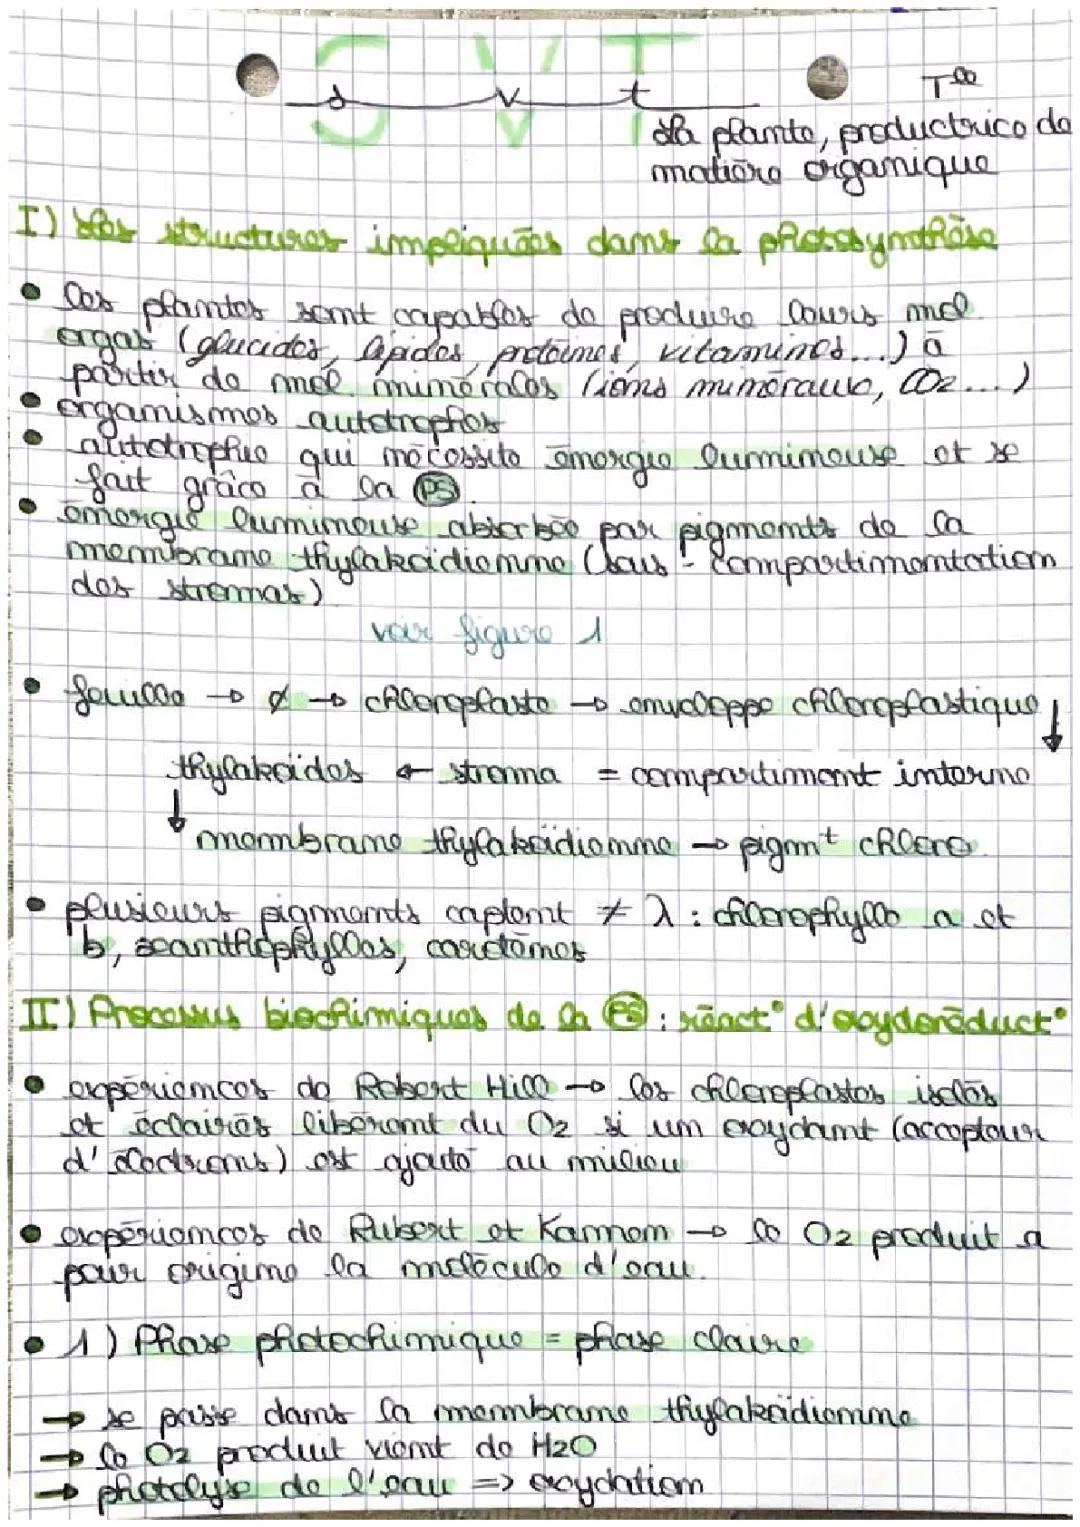 SVT
svt
Tle
La plante, productrice de
matière organique
I) Les structures impliquées dans la photosynthèse
• Les plantes sont capables de produire leurs mol
orgas (glucides, lipides, protéines, vitamines...) à
partir de mol minérales (ions minéraux, CO2...)
• organismes autotrophes
• autotrophie qui nécessite énergie lumineuse et se
fait grâce à la PS.
• énergie lumineuse absorbée par pigments de la
membrane thylakoidienne (sous-compartimentation
des stromas)
voir figure 1
• feuille → ¢ → chloroplaste → enveloppe chloroplastique ↓
thylakoides ← stroma = compartiment interne
↓ membrane thylakoidienne → pigmt chloro.
• plusieurs pigments captent ≠ λ : chlorophylle a et
b, xanthophylles, carotènes
II) Processus biochimiques de la PS : réact° d'oxydoréduct°
• expériences de Robert Hill → les chloroplastes isolés
et éclairés libèrent du O2 si un oxydant (accepteur
d'électrons) est ajouté au milieu
• expériences de Rubert et Kamnon → le O2 produit a
pour origine la molécule d'eau.
• 1) Phase photochimique = phase claire
→ se passe dans la membrane thylakoïdienne
→ le O2 produit vient de H2O
→ photolyse de l'eau => oxydation